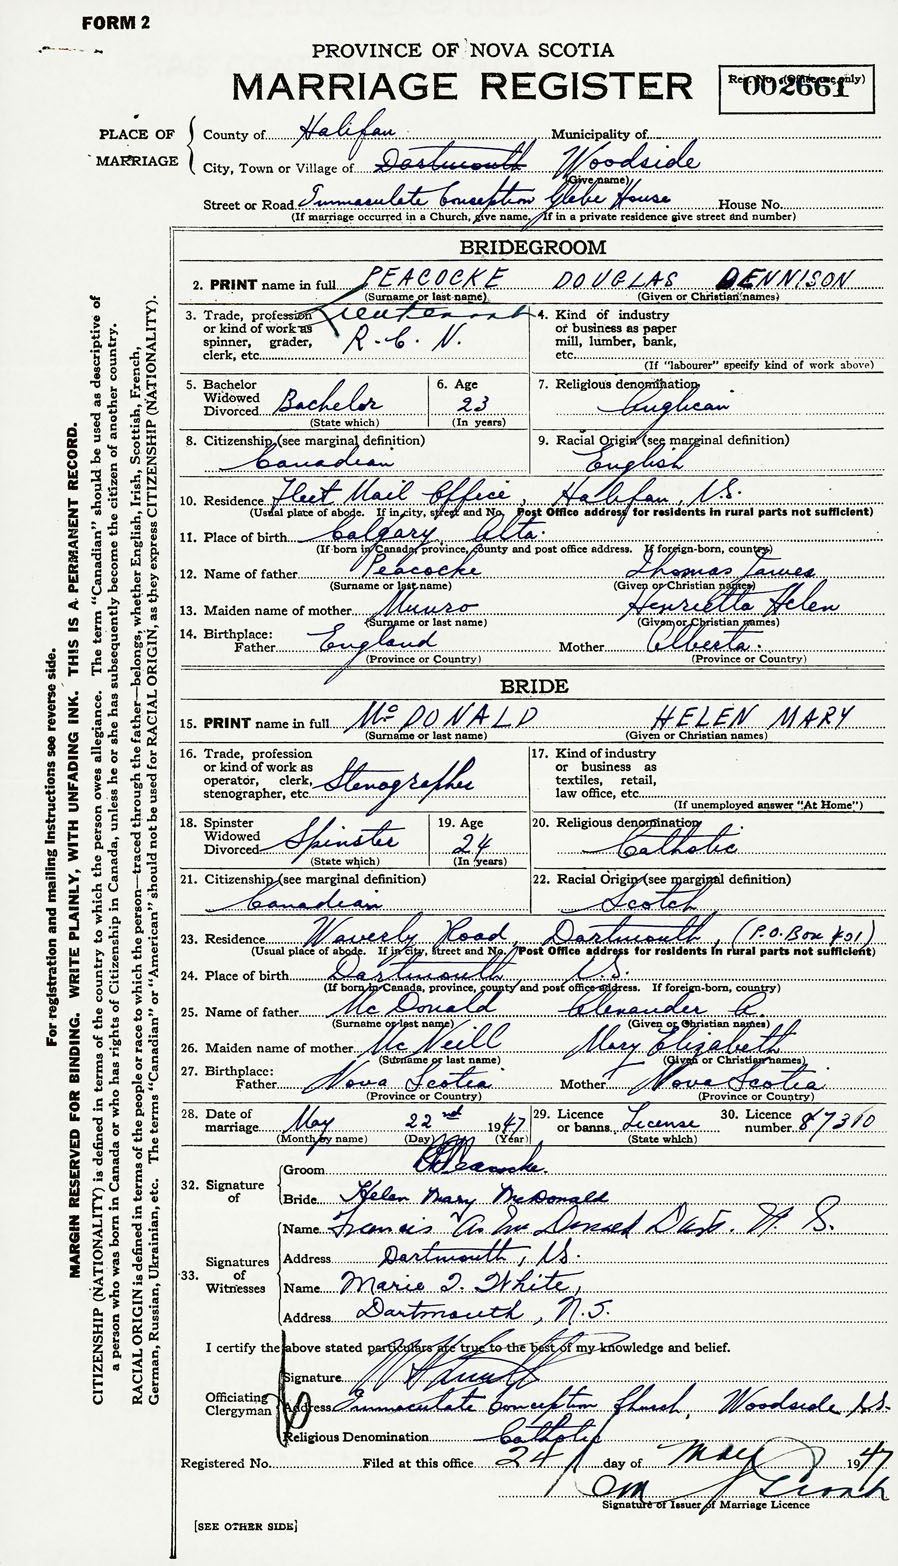 FORM 2
PROVINCE OF NOVA SCOTIA
MARRIAGE REGISTER
Reg. No. (Office use only)
002661
PLACE OF MARRIAGE
County of Halifax Municipality of
City, Town or Village of Dartmouth Woodside
(Give name)
Street or Road Immaculate Conception Glebe House House No.
(If marriage occurred in a Church, give name. If in a private residence give street and number)
BRIDEGROOM
2. PRINT name in full PEACOCKE DOUGLAS DENNISON
(Surname or last name) (Given or Christian names)
3. Trade, profession or kind of work as spinner, grader, clerk, etc. Lieutenant R.C.N.
4. Kind of industry or business as paper mill, lumber, bank, etc.
(If "labourer" specify kind of work above)
5. Bachelor Widowed Divorced Bachelor (State which)
6. Age 23 (In years)
7. Religious denomination Anglican
8. Citizenship (see marginal definition) Canadian
9. Racial Origin (see marginal definition) English
10. Residence Fleet Mail Office, Halifax, N.S.
(Usual place of abode. If in city, street and No. Post Office address for residents in rural parts not sufficient)
11. Place of birth Calgary Alta.
(If born in Canada, province, county and post office address. If foreign-born, country)
12. Name of father Peacocke Thomas James
(Surname or last name) (Given or Christian names)
13. Maiden name of mother Munro Henrietta Helen
(Surname or last name) (Given or Christian names)
14. Birthplace: Father England Mother Alberta.
(Province or Country) (Province or Country)
BRIDE
15. PRINT name in full McDONALD HELEN MARY
(Surname or last name) (Given or Christian names)
16. Trade, profession or kind of work as operator, clerk, stenographer, etc. Stenographer
17. Kind of industry or business as textiles, retail, law office, etc.
(If unemployed answer "At Home")
18. Spinster Widowed Divorced Spinster (State which)
19. Age 24 (In years)
20. Religious denomination Catholic
21. Citizenship (see marginal definition) Canadian
22. Racial Origin (see marginal definition) Scotch
23. Residence Waverly Road, Dartmouth, (P.O. Box 401)
(Usual place of abode. If in city, street and No. Post Office address for residents in rural parts not sufficient)
24. Place of birth Dartmouth N.S.
(If born in Canada, province, county and post office address. If foreign-born, country)
25. Name of father McDonald Alexander A.
(Surname or last name) (Given or Christian names)
26. Maiden name of mother McNeill Mary Elizabeth
(Surname or last name) (Given or Christian names)
27. Birthplace: Father Nova Scotia Mother Nova Scotia
(Province or Country) (Province or Country)
28. Date of marriage May 22nd 1947
(Month by name) (Day) (Year)
29. Licence or banns License (State which)
30. Licence number 87310
32. Signature of
Groom Peacocke.
Bride Helen Mary McDonald
33. Signatures of Witnesses
Name Francis A. McDonald Dart. N.S.
Address Dartmouth, N.S.
Name Marie T. White,
Address Dartmouth, N.S.
I certify the above stated particulars are true to the best of my knowledge and belief.
Officiating Clergyman
Signature
Address Immaculate Conception Church, Woodside N.S.
Religious Denomination Catholic
Registered No. Filed at this office 24 day of May 1947
Signature of Issuer of Marriage Licence
[SEE OTHER SIDE]
For registration and mailing instructions see reverse side.
MARGIN RESERVED FOR BINDING. WRITE PLAINLY, WITH UNFADING INK. THIS IS A PERMANENT RECORD.
CITIZENSHIP (NATIONALITY) is defined in terms of the country to which the person owes allegiance. The term "Canadian" should be used as descriptive of
a person who was born in Canada or who has rights of Citizenship in Canada, unless he or she has subsequently become the citizen of another country.
RACIAL ORIGIN is defined in terms of the people or race to which the person—traced through the father—belongs, whether English, Irish, Scottish, French,
German, Russian, Ukrainian, etc. The terms "Canadian" or "American" should not be used for RACIAL ORIGIN, as they express CITIZENSHIP (NATIONALITY).